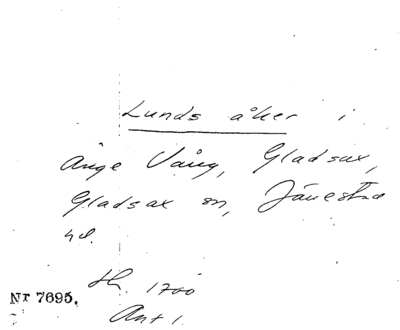 Lunds åker i
Änge Vång, Gladsax,
Gladsax sn, Järrestad
hd.
Lh. 1700
Nr 7695.
Ant 1.